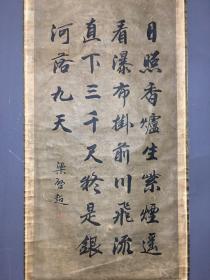 日照香爐生紫煙遥
看瀑布掛前川飛流
直下三千尺疑是銀
河落九天
梁啓超